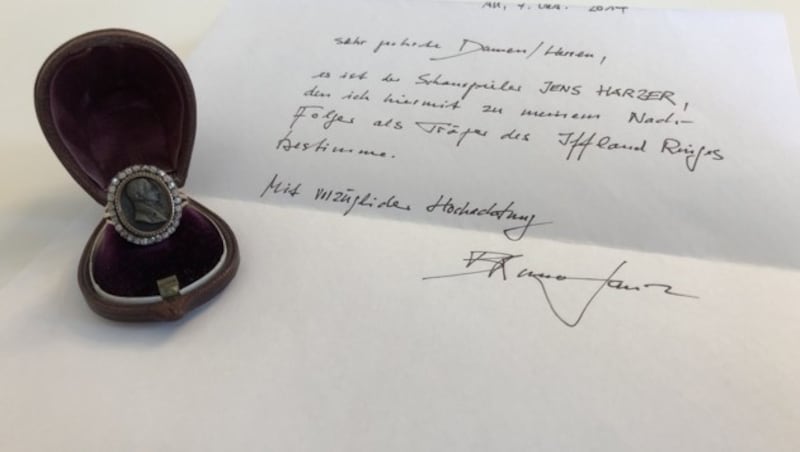 2014
sehr geehrte Damen/Herren,
es ist der Schauspieler JENS HARZER,
den ich hiermit zu meinem Nach-
Folger als Träger des Iffland Ringes
bestimme.
Mit vorzüglicher Hochachtung
Bruno Ganz